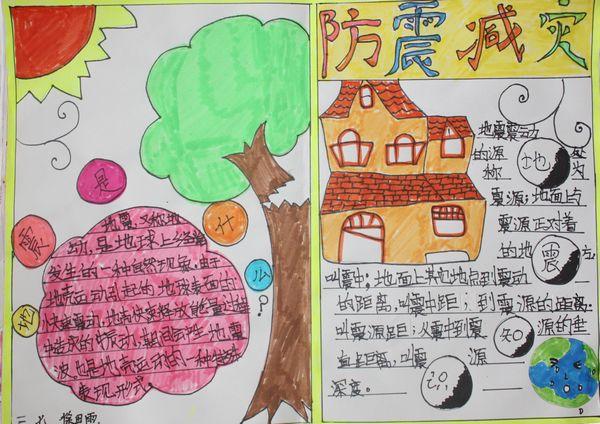 防震减灾
地震是什么?
地震又称地
动,是地球上经常
发生的一种自然现象。由于
地壳运动引起的地球表面的
快速震动,地壳快速释放能量过程
中造成的振动,期间产生地震
波,也是地壳运动的一种特殊
表现形式。
地震知识
地震震动
的源处
称为
震源;地面与
震源正对着
的地方,
叫震中;地面上其他地点到震动
的距离,叫震中距;到震源的距离
叫震源距;从震中到震源的垂
直距离,叫震源
深度。